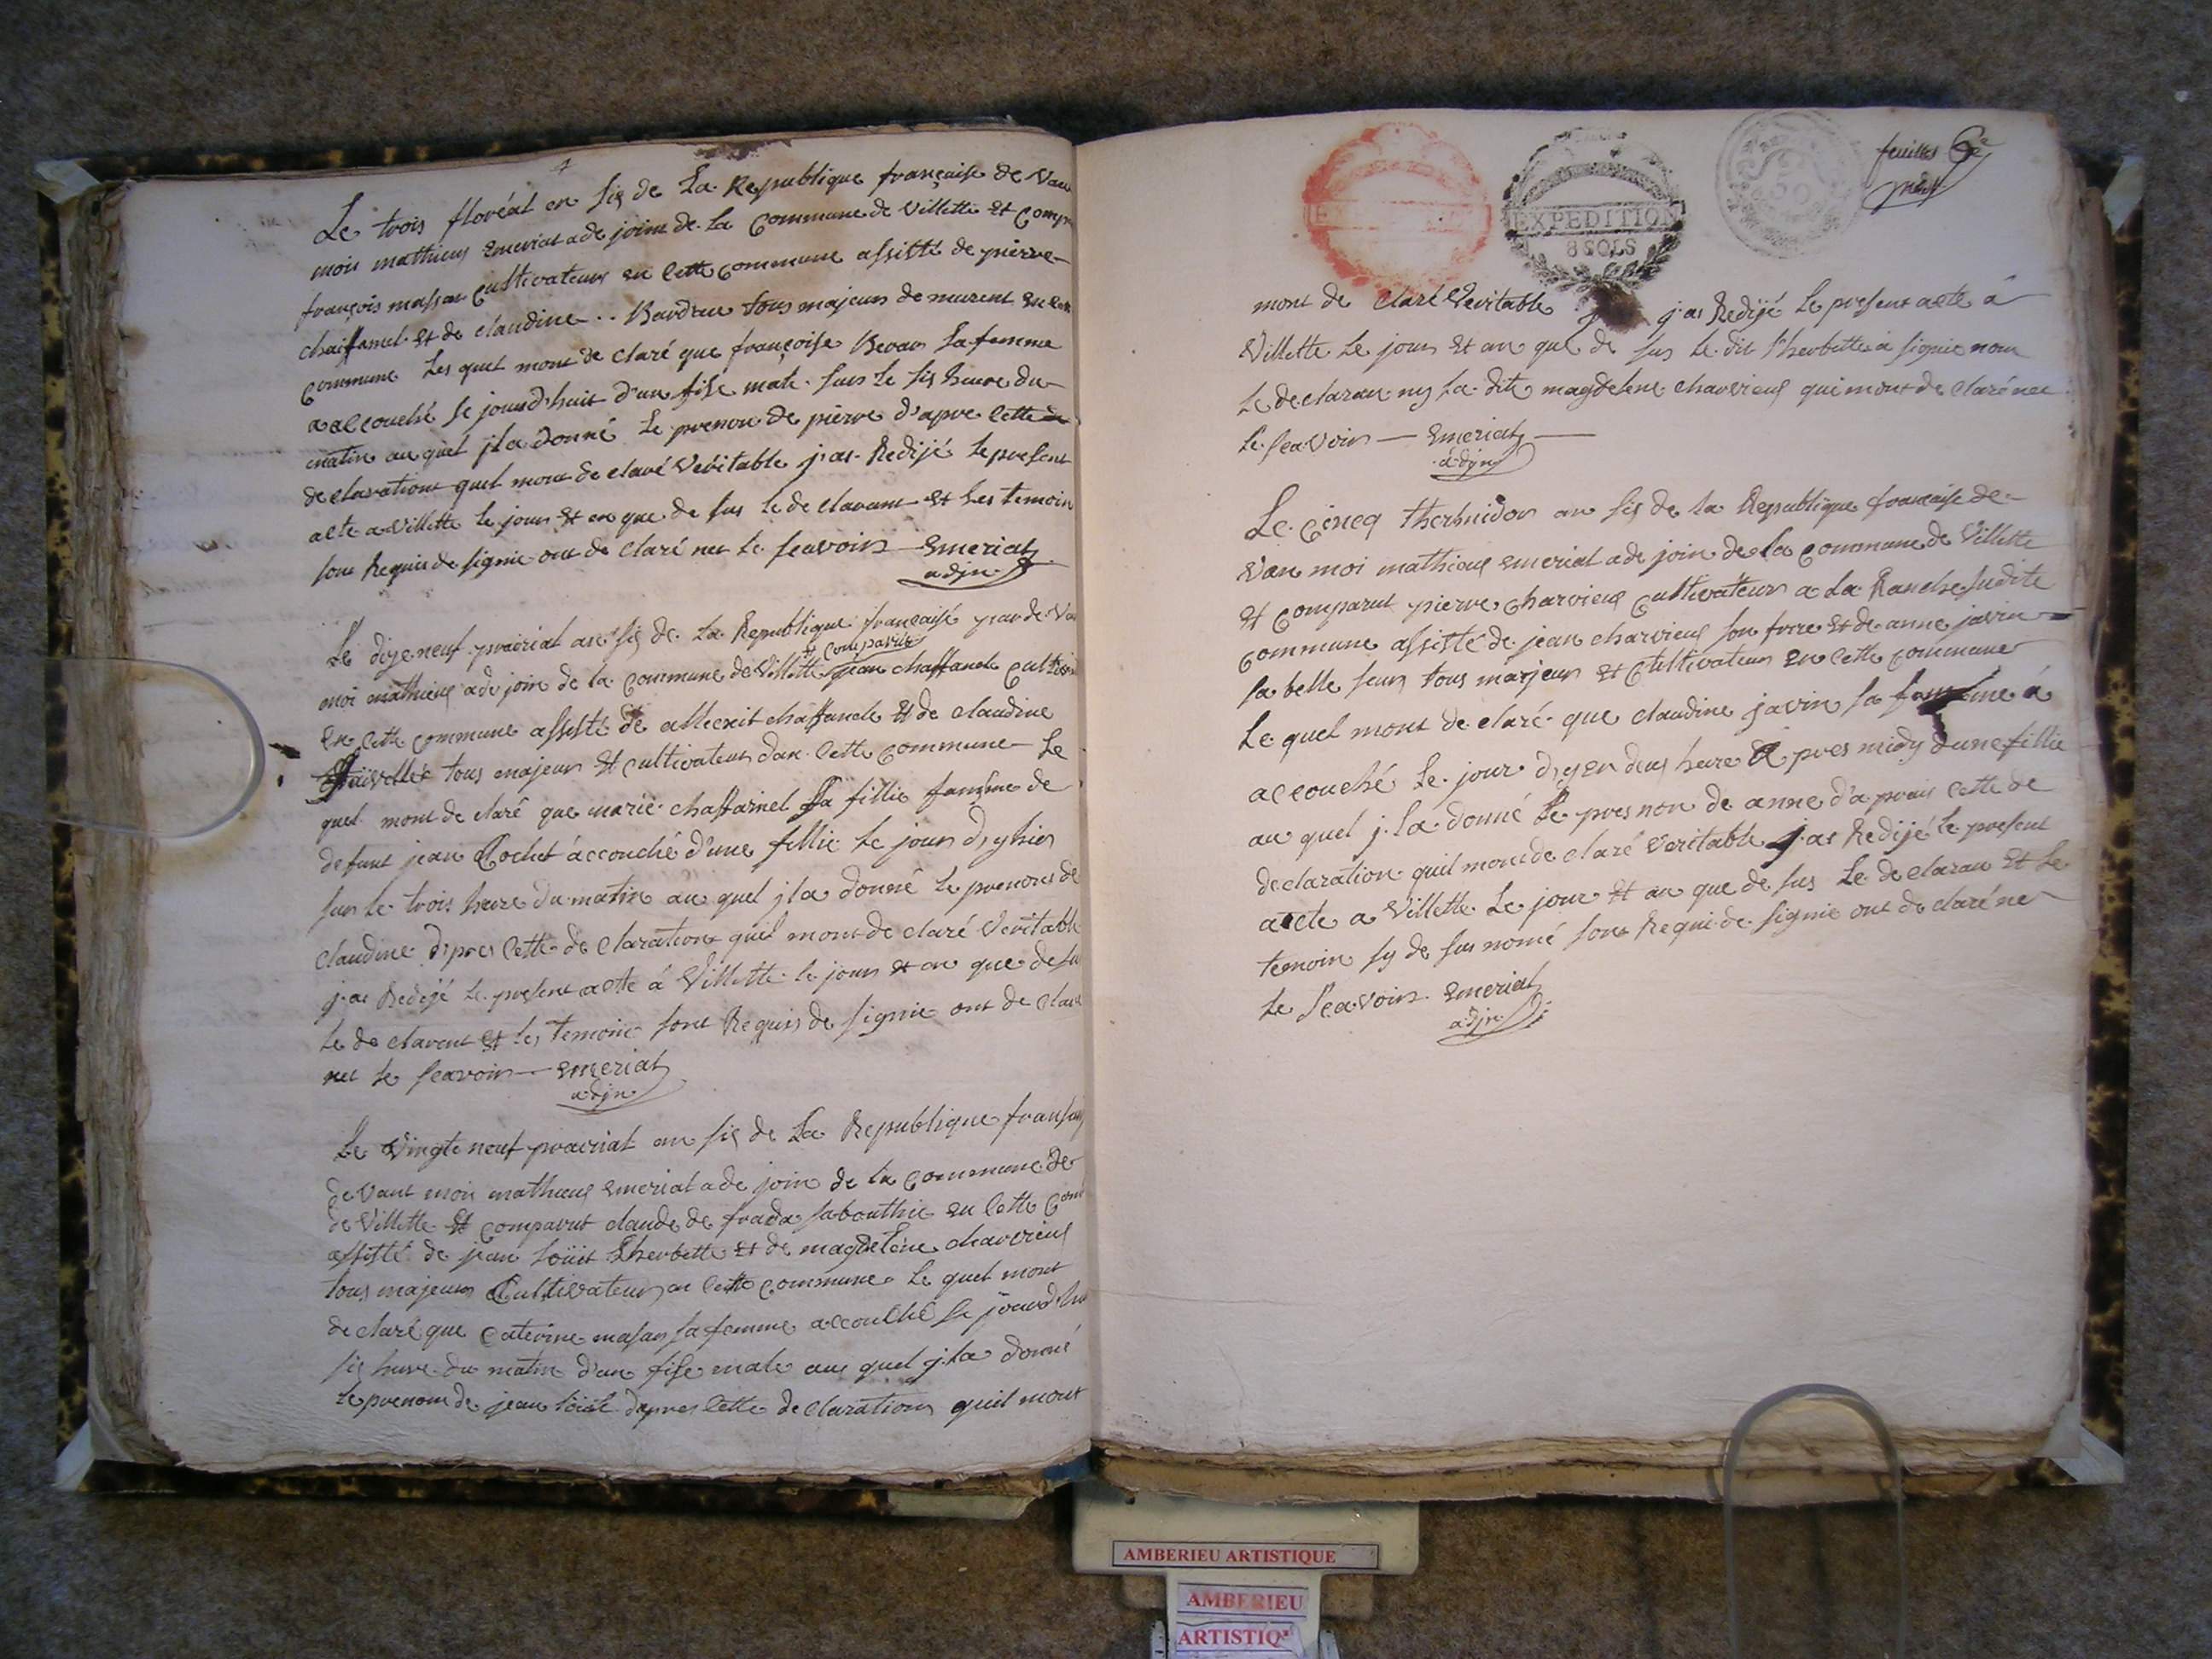 Le trois floréal an six de La Republique française de van
moi mathieu Emeriat adejoint de La Commune de Villette Et Compr
françois massan Cultivateur en Cette commune assisté de pierre
chaiffanel Et de claudine Bardeau tous majeurs demurent en Cette
commune Les quel mont de claré que françoise Bevan sa femme
a accouché se jourd'huit d'un fise male sur Le six heure du
matin au quel jla donné Le prenon de pierre d'apre Cette
declaration quel mont de claré Veritable j'ai Redijé Le present
acte a Villette Le jour Et an que de sus Le de clarant Et Les temoin
sont Requis de signie ont de claré net Le seavoir Emeriat
adjn
Le dize neuf prairial an six de La Republique française par de Van
moi mathieu adejoin de la commune de Villette Et Comparue jean chaffanel Cultiva
en Cette commune assisté de allexit chaffanele Et de claudine
tous majeur Et cultivateur dan Cette commune Le
quel mont de claré que marie chaffainel sa fillie famme de
defunt jean Cochet áccouché d'une fillie Le jour d'yhier
sur Le trois heure du matin au quel jla donné Le prenons de
claudine d'pres Cette de claration quel mont de claré Veritable
j'ai Redijé Le present acte á Villette le jour Et an que de su
Le de clarent Et les temoin sont Requis de signie ont de claré
net Le seavoir Emeriat
adjn
Le Vingte neuf prairial an six de La Republique fransaij
de Vant moi mathieu Emeriat adejoin de la Commune de
de Villette Et comparut claude de frada sabouthie en Cette Com
assisté de jean Loüit Lherbette Et de magdeleine charvieux
tous majeurs Cultivateur en Cette commune Le quel mont
de claré que Caterine masan sa femme accouché se jourd'hui
six heure du matin d'un fise male au quel jla donné
Le prenom de jean Loüit d'apres Cette de claration quil mont
feuillet 6e
EXPEDITION
8 SOLS
mont de claré Veritable j'ai Redijé Le present acte á
Villette Le jour Et an que de sus Le dit l'herbette a signie non
Le declaran ny La dite magdelene charvieux qui mont de claré net
Le seavoir Emeriat
adjn
Le Cincq thermidor an six de la Republique française de
Van moi mathieu emeriat adejoin de La commune de Villette
Et Comparut pierre charvieux Cultivateur a La Ranche sudite
Commune assisté de jean charvieux son frere Et de anne javin
sa belle seur tous marjeur Et Cultivateur en Cette commune
Le quel mont de claré que claudine javin sa femme á
accouché Le jour dyer deux heure Apres midy dune fillie
au quel j.la donné Le presnon de anne d'aprais Cette de
declaration quil mont de claré Veritable j.ai Redijé Le present
acte a Villette Le jour Et an que de sus Le de claran Et Le
temoin sy de sus nomé sont Requi de signie ont de claré ne
Le seavoir Emeriat
adjn
AMBERIEU ARTISTIQUE
AMBERIEU
ARTISTIQ